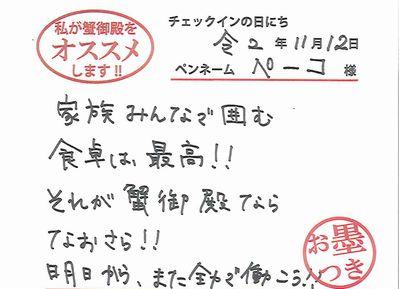 私が蟹御殿を
オススメ
します!!
チェックインの日にち
令2年11月12日
ペンネーム ペーコ 様
家族みんなで囲む
食卓は、最高!!
それが蟹御殿なら
なおさら!!
明日から、また全力で働こう!!
お墨
つき